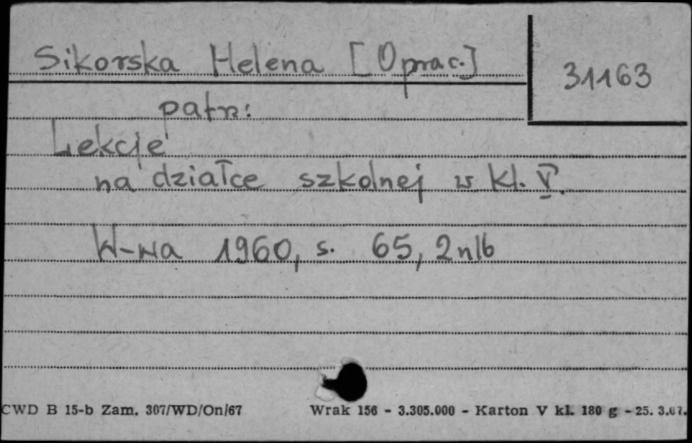 Sikorska Helena [Oprac.]
31163
patrz:
Lekcje
na działce szkolnej w kl. V.
W-wa 1960, s. 65, 2 nlb
CWD B 15-b Zam. 307/WD/On/67 Wrak 156 - 3.305.000 - Karton V kl. 180 g - 25. 3.67.